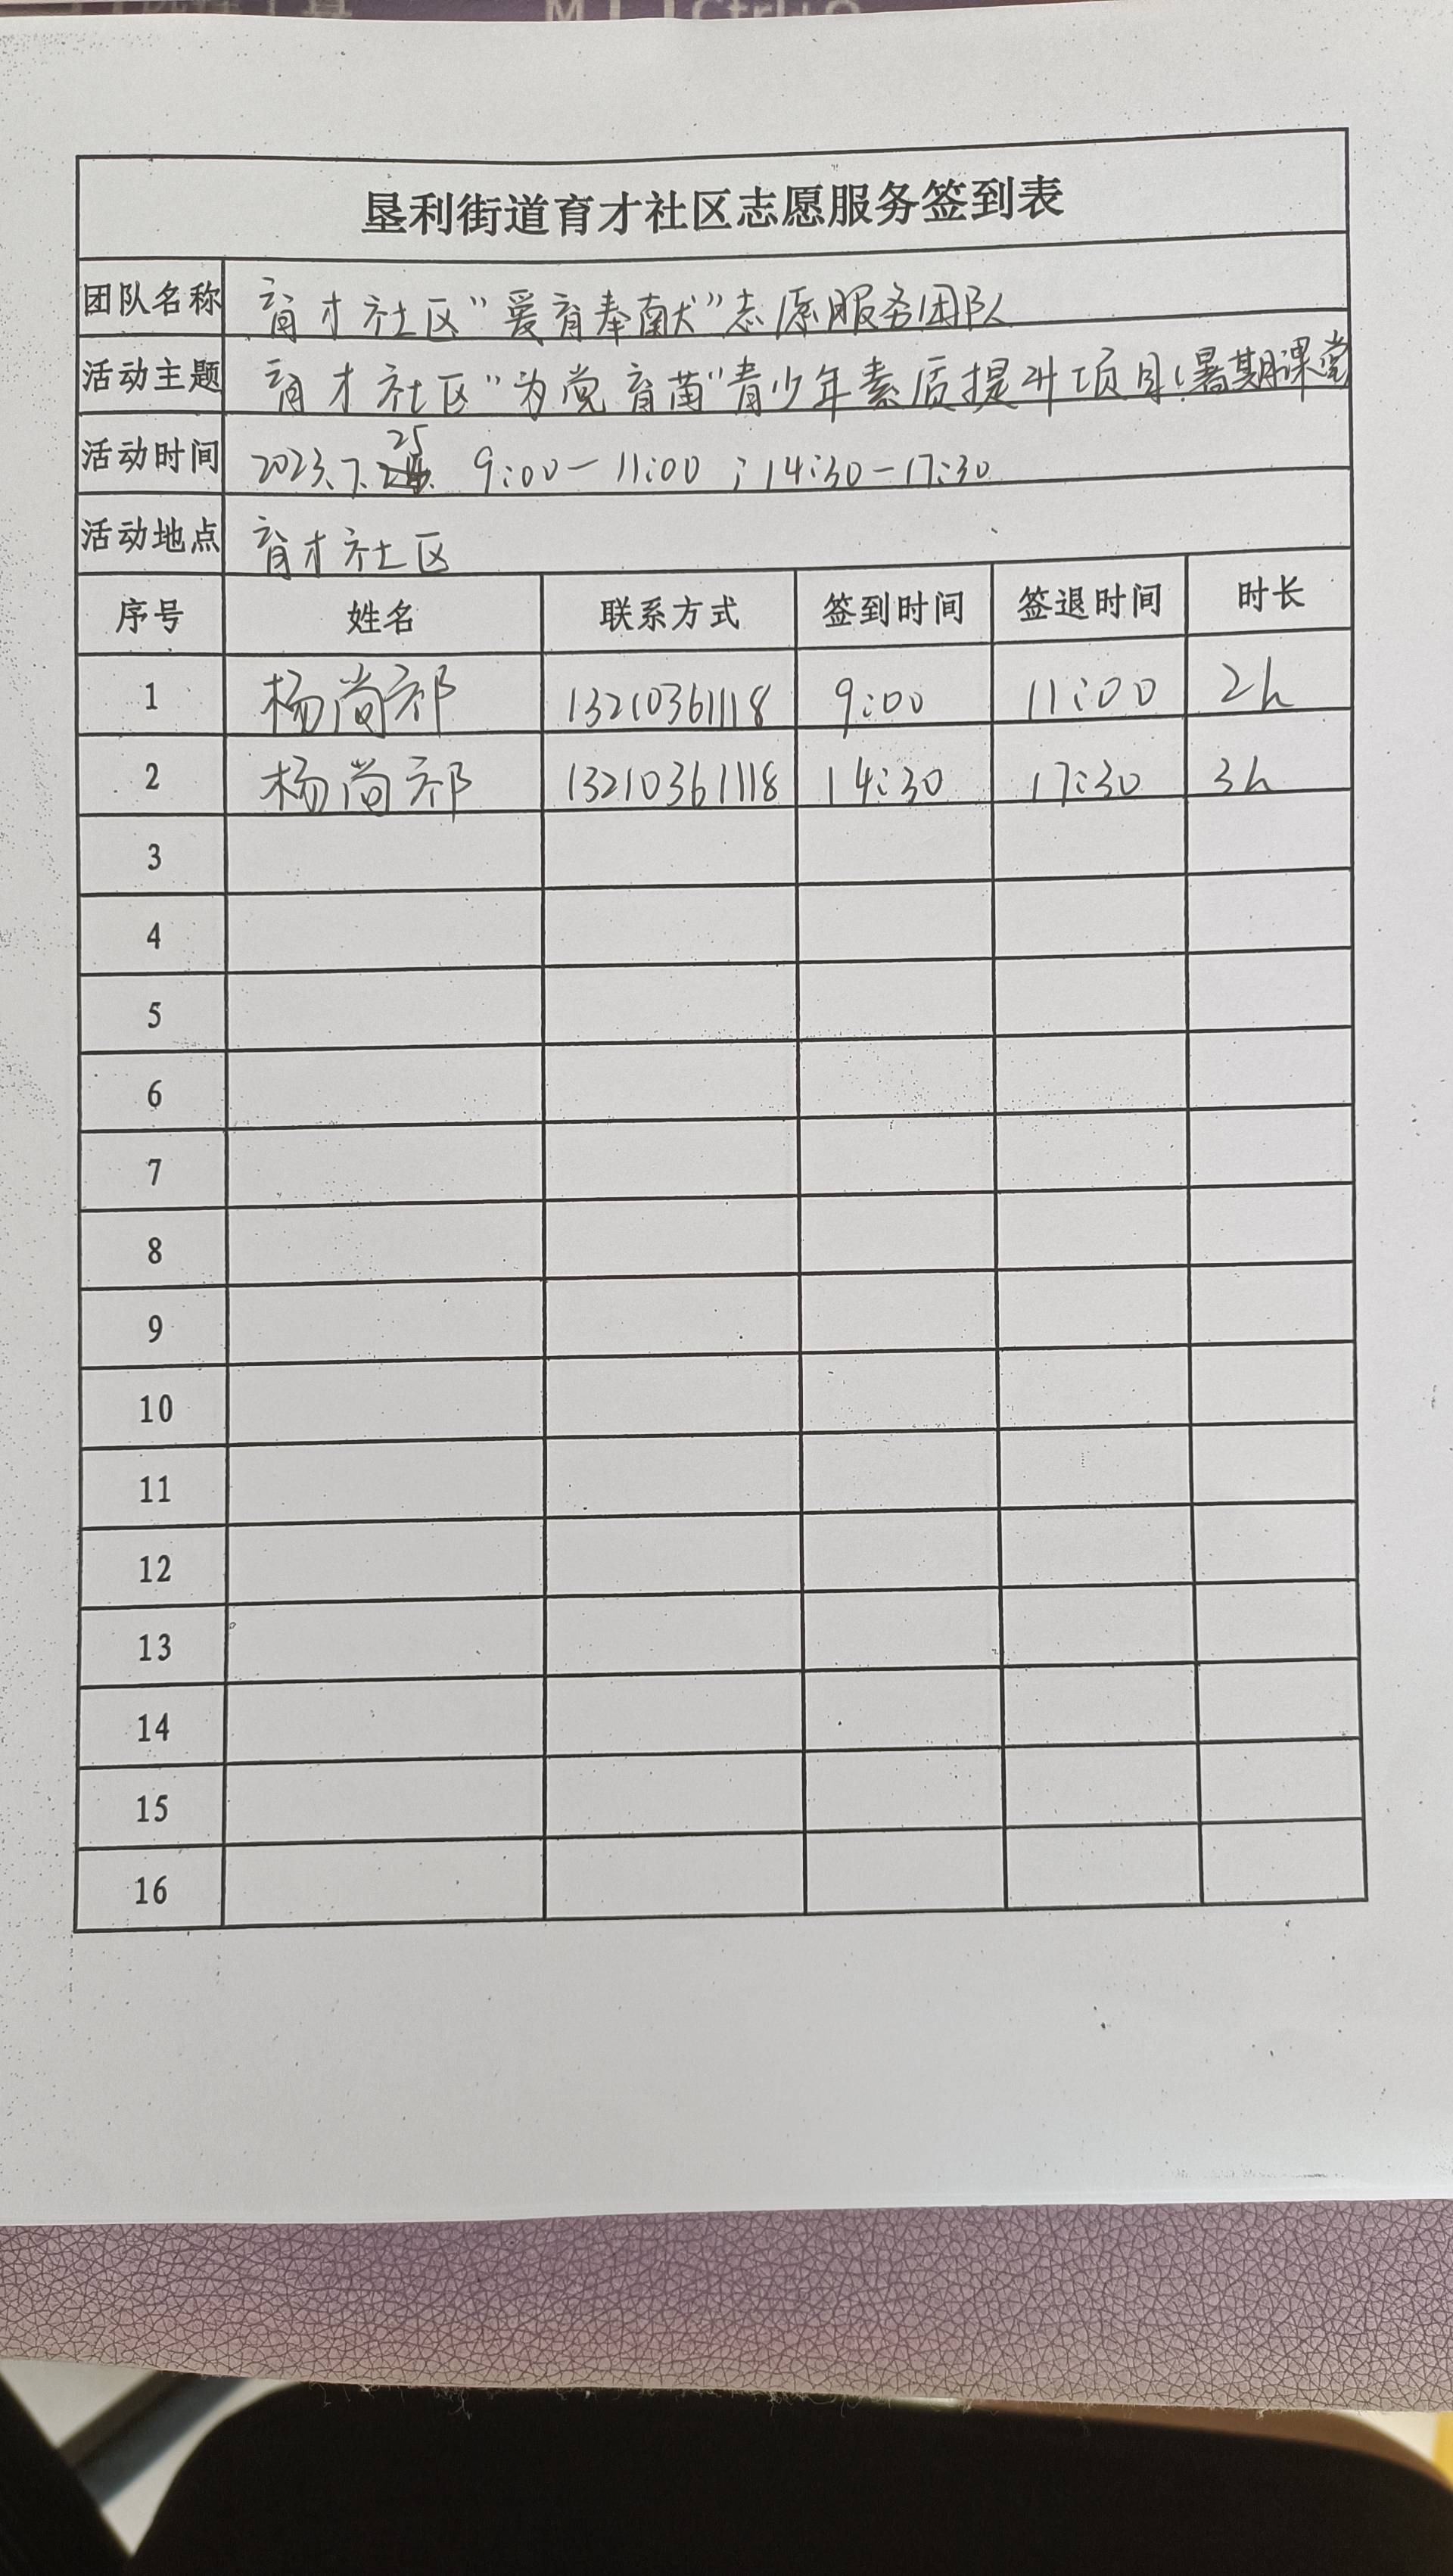 垦利街道育才社区志愿服务签到表
团队名称 育才社区"爱育奉献"志愿服务团队
活动主题 育才社区"为党育苗"青少年素质提升项目(暑期课堂
活动时间 2023.7.25 9:00-11:00;14:30-17:30
活动地点 育才社区
序号 姓名 联系方式 签到时间 签退时间 时长
1 杨尚祁 13210361118 9:00 11:00 2h
2 杨尚祁 13210361118 14:30 17:30 3h
3
4
5
6
7
8
9
10
11
12
13
14
15
16